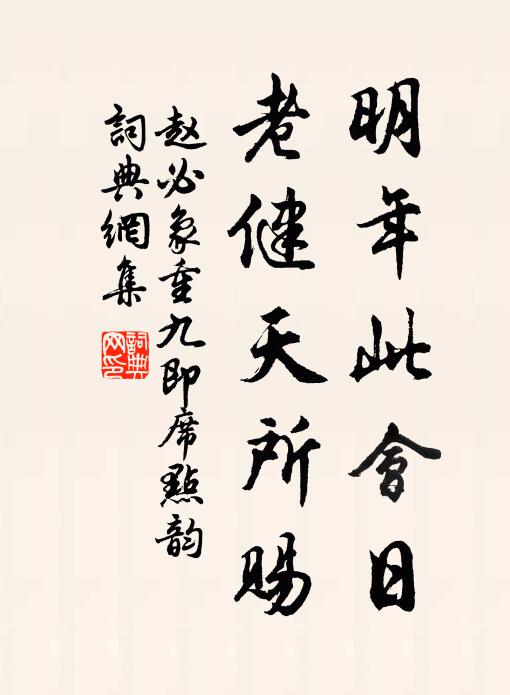 明年此會日
老健天所賜
赵必象重九即席點韵
詞典網集
詞典网印